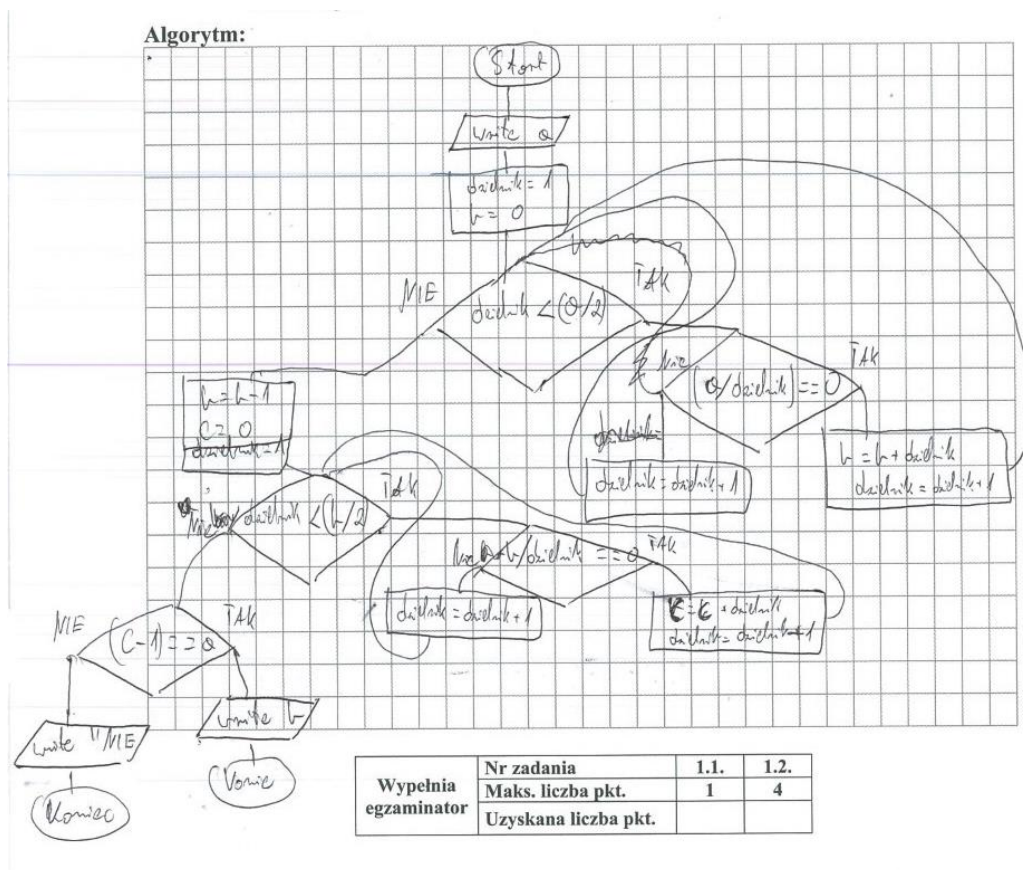 Algorytm:
Start
write a
dzielnik = 1
b = 0
NIE
dzielnik < (a/2)
TAK
Nie
(a/dzielnik) == 0
TAK
b = b - 1
C = 0
dzielnik = 1
dzielnik = dzielnik + 1
b = b + dzielnik
dzielnik = dzielnik + 1
Nie
dzielnik < (b/2)
TAK
Nie
b/dzielnik == 0
TAK
dzielnik = dzielnik + 1
C = C + dzielnik
dzielnik = dzielnik + 1
NIE
(C-1) == a
TAK
write "NIE
write b
Koniec
Koniec
Wypełnia egzaminator
Nr zadania 1.1. 1.2.
Maks. liczba pkt. 1 4
Uzyskana liczba pkt.